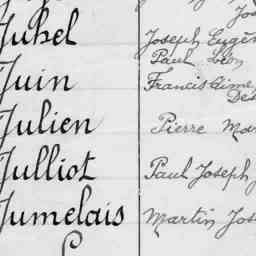 Juhel Joseph Eugèn
Paul Léon
Juin Francis Aimé
Dés
Julien Pierre Mar
Julliot Paul Joseph J
Jumelais Martin Jos